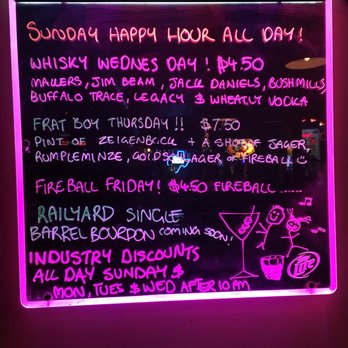 SUNDAY HAPPY HOUR ALL DAY!
WHISKY WEDNES DAY! $4.50
MAKERS, JIM BEAM, JACK DANIELS, BUSHMILLS,
BUFFALO TRACE, LEGACY & WHEATLY VODKA
FRAT BOY THURSDAY!! $7.50
PINT OF ZEIGENBOCK + A SHOT OF JAGER,
RUMPLEMINZE, GOLDSCHLAGER OR FIREBALL
FIREBALL FRIDAY! $4.50 FIREBALL ......
RAILYARD SINGLE
BARREL BOURBON COMING SOON!
INDUSTRY DISCOUNTS
ALL DAY SUNDAY &
MON, TUES & WED AFTER 10PM
LITE